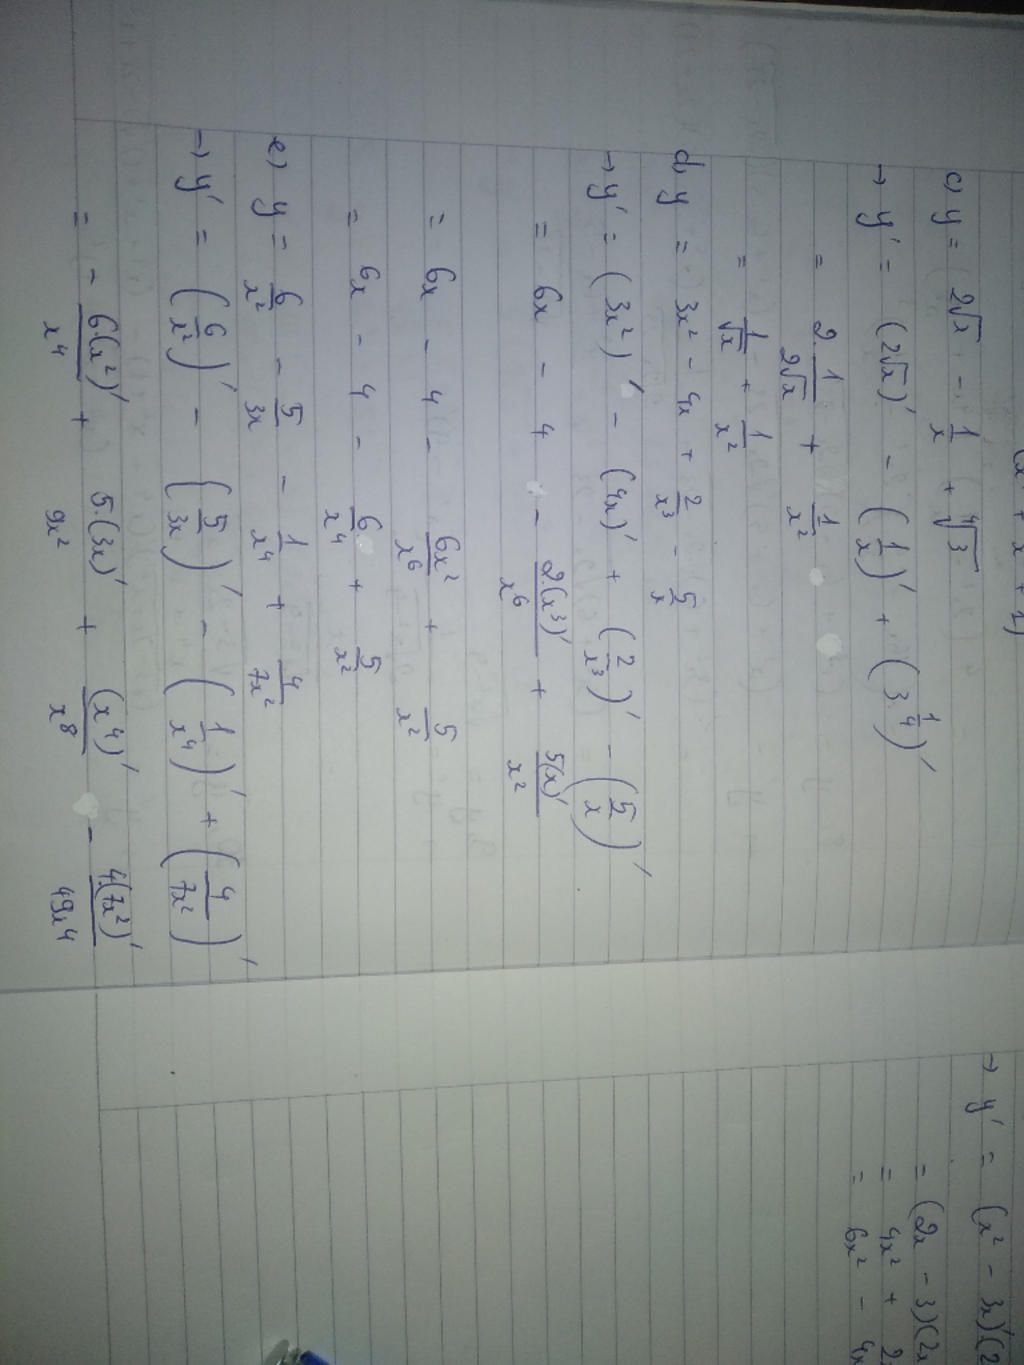 (x² + x + 1)
c) y = 2√x - 1/x + ∜3
→ y' = (2√x)' - (1/x)' + (3^{1/4})'
= 2. 1/(2√x) + 1/x²
= 1/√x + 1/x²
d) y = 3x² - 4x + 2/x³ - 5/x
→ y' = (3x²)' - (4x)' + (2/x³)' - (5/x)'
= 6x - 4 - 2.(x³)'/x⁶ + 5(x)'/x²
= 6x - 4 - 6x²/x⁶ + 5/x²
= 6x - 4 - 6/x⁴ + 5/x²
e) y = 6/x² - 5/3x - 1/x⁴ + 4/7x²
→ y' = (6/x²)' - (5/3x)' - (1/x⁴)' + (4/7x²)'
= - 6.(x²)'/x⁴ + 5.(3x)'/9x² + (x⁴)'/x⁸ - 4.(7x²)'/49x⁴
→ y' = (x² - 3x)'(2
= (2x - 3)(2x
= 4x² + 2x
= 6x² - 4x